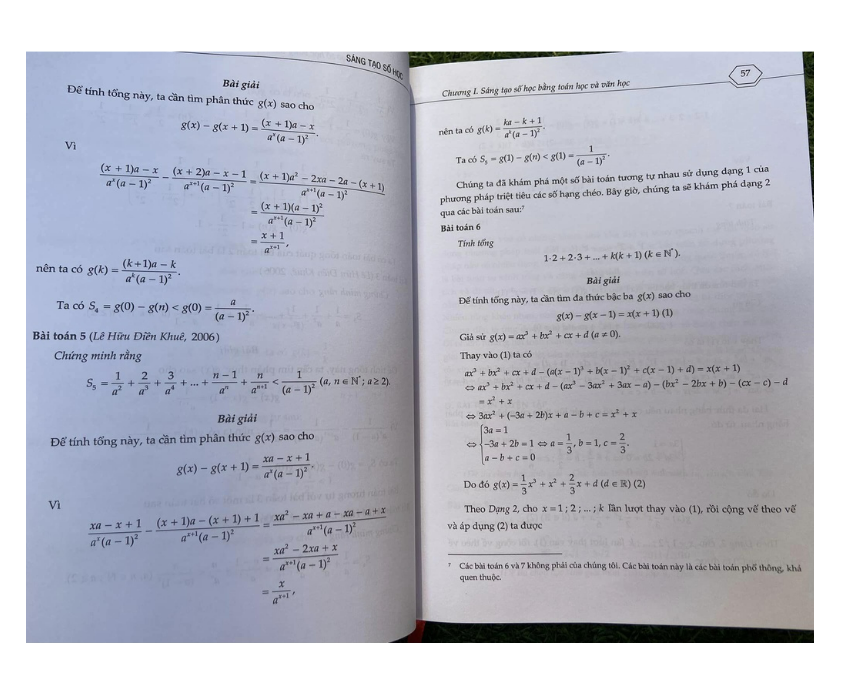 SÁNG TẠO SỐ HỌC
Bài giải
Để tính tổng này, ta cần tìm phân thức g(x) sao cho
g(x) − g(x + 1) = ((x + 1)a − x)/(aˣ(a − 1)²).
Vì
((x + 1)a − x)/(aˣ(a − 1)²) − ((x + 2)a − x − 1)/(aˣ⁺¹(a − 1)²) = ((x + 1)a² − 2xa − 2a − (x + 1))/(aˣ⁺¹(a − 1)²)
= ((x + 1)(a − 1)²)/(aˣ⁺¹(a − 1)²)
= (x + 1)/aˣ⁺¹,
nên ta có g(k) = ((k+1)a − k)/(aᵏ(a − 1)²).
Ta có S₄ = g(0) − g(n) < g(0) = a/(a − 1)².
Bài toán 5 (Lê Hữu Điền Khuê, 2006)
Chứng minh rằng
S₅ = 1/a² + 2/a³ + 3/a⁴ + ... + (n − 1)/aⁿ + n/aⁿ⁺¹ < 1/(a − 1)² (a, n ∈ ℕ*; a ≥ 2).
Bài giải
Để tính tổng này, ta cần tìm phân thức g(x) sao cho
g(x) − g(x + 1) = (xa − x + 1)/(aˣ(a − 1)²).
Vì
(xa − x + 1)/(aˣ(a − 1)²) − ((x + 1)a − (x + 1) + 1)/(aˣ⁺¹(a − 1)²) = (xa² − xa + a − xa − a + x)/(aˣ⁺¹(a − 1)²)
= (xa² − 2xa + x)/(aˣ⁺¹(a − 1)²)
= x/aˣ⁺¹,
Chương I. Sáng tạo số học bằng toán học và văn học
57
nên ta có g(k) = (ka − k + 1)/(aᵏ(a − 1)²).
Ta có S₅ = g(1) − g(n) < g(1) = 1/(a − 1)².
Chúng ta đã khám phá một số bài toán tương tự nhau sử dụng dạng 1 của
phương pháp triệt tiêu các số hạng chéo. Bây giờ, chúng ta sẽ khám phá dạng 2
qua các bài toán sau:⁷
Bài toán 6
Tính tổng
1·2 + 2·3 + ... + k(k + 1) (k ∈ ℕ*).
Bài giải
Để tính tổng này, ta cần tìm đa thức bậc ba g(x) sao cho
g(x) − g(x − 1) = x(x + 1) (1)
Giả sử g(x) = ax³ + bx² + cx + d (a ≠ 0).
Thay vào (1) ta có
ax³ + bx² + cx + d − (a(x − 1)³ + b(x − 1)² + c(x − 1) + d) = x(x + 1)
⇔ ax³ + bx² + cx + d − (ax³ − 3ax² + 3ax − a) − (bx² − 2bx + b) − (cx − c) − d
= x² + x
⇔ 3ax² + (−3a + 2b)x + a − b + c = x² + x
⇔ { 3a = 1
−3a + 2b = 1 ⇔ a = 1/3, b = 1, c = 2/3.
a − b + c = 0
Do đó g(x) = 1/3x³ + x² + 2/3x + d (d ∈ ℝ) (2)
Theo Dạng 2, cho x = 1 ; 2 ; ... ; k lần lượt thay vào (1), rồi cộng vế theo vế
và áp dụng (2) ta được
⁷ Các bài toán 6 và 7 không phải của chúng tôi. Các bài toán này là các bài toán phổ thông, khá
quen thuộc.